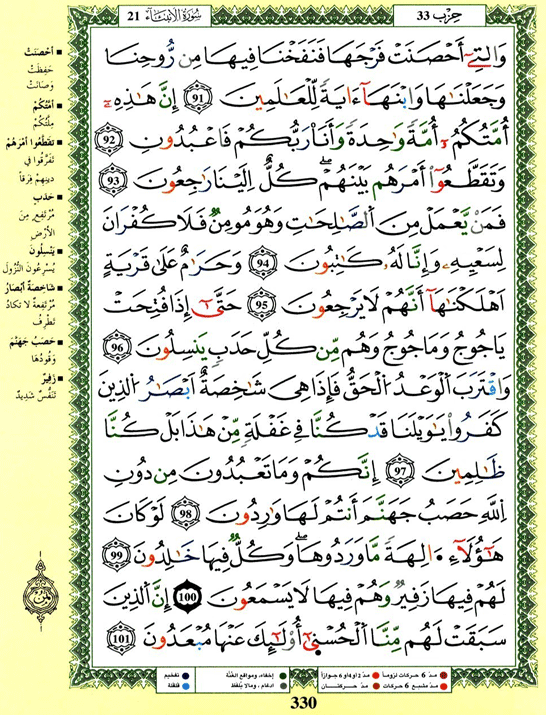 حِزْب 33
سُورَةُ الأَنبِيَاء 21
وَالتِےٓ أَحْصَنَتْ فَرْجَهَا فَنَفَخْنَا فِيهَا مِن رُّوحِنَا
وَجَعَلْنَٰهَا وَابْنَهَآ ءَايَةٗ لِّلْعَٰلَمِينَ 91 إِنَّ هَٰذِهِۦٓ
أُمَّتُكُمُۥٓ أُمَّةٗ وَٰحِدَةٗ وَأَنَا رَبُّكُمْ فَاعْبُدُونِ 92
وَتَقَطَّعُوٓاْ أَمْرَهُم بَيْنَهُمْ كُلٌّ اِلَيْنَا رَٰجِعُونَ 93
فَمَنْ يَّعْمَلْ مِنَ اَلصَّٰلِحَٰتِ وَهُوَ مُومِنٞ فَلَا كُفْرَانَ
لِسَعْيِهِۦ وَإِنَّا لَهُۥ كَٰتِبُونَ 94 وَحَرَٰمٌ عَلَىٰ قَرْيَةٍ
اَهْلَكْنَٰهَآ أَنَّهُمْ لَا يَرْجِعُونَ 95 حَتَّىٰٓ إِذَا فُتِحَتْ
يَاجُوجُ وَمَاجُوجُ وَهُم مِّن كُلِّ حَدَبٖ يَنسِلُونَ 96
وَاقْتَرَبَ اَلْوَعْدُ اَلْحَقُّ فَإِذَا هِيَ شَٰخِصَةٌ اَبْصَٰرُ اُلذِينَ
كَفَرُواْ يَٰوَيْلَنَا قَدْ كُنَّا فِي غَفْلَةٖ مِّنْ هَٰذَا بَلْ كُنَّا
ظَٰلِمِينَ 97 إِنَّكُمْ وَمَا تَعْبُدُونَ مِن دُونِ
اِللَّهِ حَصَبُ جَهَنَّمَ أَنتُمْ لَهَا وَٰرِدُونَ 98 لَوْ كَانَ
هَٰٓؤُلَآءِ ءَالِهَةٗ مَّا وَرَدُوهَا وَكُلّٞ فِيهَا خَٰلِدُونَ 99
لَهُمْ فِيهَا زَفِيرٞ وَهُمْ فِيهَا لَا يَسْمَعُونَ 100 إِنَّ اَلذِينَ
سَبَقَتْ لَهُم مِّنَّا اَلْحُسْنَىٰٓ أُوْلَٰٓئِكَ عَنْهَا مُبْعَدُونَ 101
أَحْصَنَتْ
حَفِظَتْ
وَصَانَتْ
أُمَّتُكُمْ
مِلَّتُكُمْ
تَقَطَّعُوا أَمْرَهُمْ
تَفَرَّقُوا فِي
دينِهِمْ فِرَقاً
حَدَبٍ
مُرْتَفِعٍ مِنَ
الأَرْضِ
يَنْسِلُونَ
يُسْرِعُونَ النُّزُولَ
شَاخِصَةٌ أَبْصَارُ
مُرْتَفِعَةٌ لا تَكادُ
تَطْرِفُ
حَصَبُ جَهَنَّمَ
وَقُودُهَا
زَفِيرٌ
تَنَفُّسٌ شَدِيدٌ
مدّ 6 حركات لزوماً
مدّ 2 أو 4 أو 6 جوازاً
إخفاء، ومواقع الغُنَّة
تفخيم
مدّ مشبع 6 حركات
مدّ حركتان
ادغام، وما لا يُلفَظ
قلقلة
330